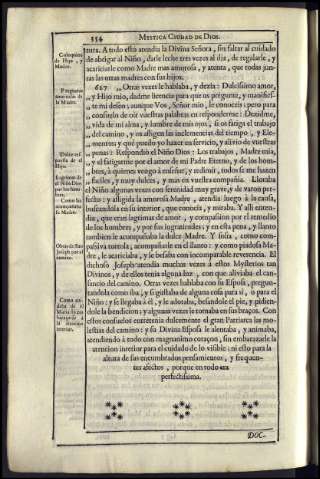 554 MYSTICA CIUDAD DE DIOS.
tura. A todo esto atendia la Divina Señora, sin faltar al cuidado
de abrigar al Niño, darle leche tres vezes al dia, de regalarle, y
acariciarle como Madre mas amorosa, y atenta, que todas juntas
las otras madres con sus hijos.
627 „Otras vezes le hablaba, y dezia: Dulcissimo amor,
„y Hijo mio, dadme licencia para que os pregunte, y manifieste
mi deseo, aunque Vos, Señor mio, le conoceis; pero para
„consuelo de oir vuestras palabras en responderme: Dezidme,
„vida de mi alma, y lumbre de mis ojos, si os fatiga el trabajo
„del camino, y os afligen las inclemencias del tiempo, y Elementos
y què puedo yo hazer en servicio, y alivio de vuestras
„penas? Respondiò el Niño Dios: Los trabajos, Madre mia,
„y el fatigarme por el amor de mi Padre Eterno, y de los hombres,
à quienes vengo à enseñar, y redimir, todos se me hazen
„faciles, y muy dulces, y mas en vuestra compañia. Lloraba
el Niño algunas vezes con serenidad muy grave, y de varon perfecto:
y afligida la amorosa Madre, atendia luego à la causa,
buscandola en su interior, que conocia, y miraba. Y alli entendia,
que eran lagrimas de amor, y compassion por el remedio
de los hombres, y por sus ingratitudes: y en esta pena, y llanto
tambien le acompañaba la dulce Madre. Y solia, como compassiva
tortola, acompañarle en el llanto: y como piadosa Madre,
le acariciaba, y le besaba con incomparable reverencia. El
dichoso Joseph atendia muchas vezes à estos Mysterios tan
Divinos, y de ellos tenia alguna luz, con que aliviaba el cansancio
del camino. Otras vezes hablaba con su Esposa, preguntandola
como iba, y si gustaba de alguna cosa para si, ò para el
Niño: y se llegaba à èl, y le adoraba, besandole el pie, y pidiendole
la bendicion: y algunas vezes le tomaba en sus braços. Con
estos consuelos entretenia dulcemente el gran Patriarca las molestias
del camino: y su Divina Esposa le alentaba, y animaba,
atendiendo à todo con magnanimo coraçon, sin embarazarle la
atencion interior para el cuidado de lo visible: ni esto para la
altura de sus encumbrados pensamientos, y frequentes
afectos, porque en todo era
perfectissima.
DOC-
Coloquios
de Hijo, y
Madre.
Preguntas
amorosas de
la Madre.
Dulce respuesta
de el
Hijo.
Lagrimas de
el Niño Dios
por los hombres.
Como las
acompañaba
su Madre.